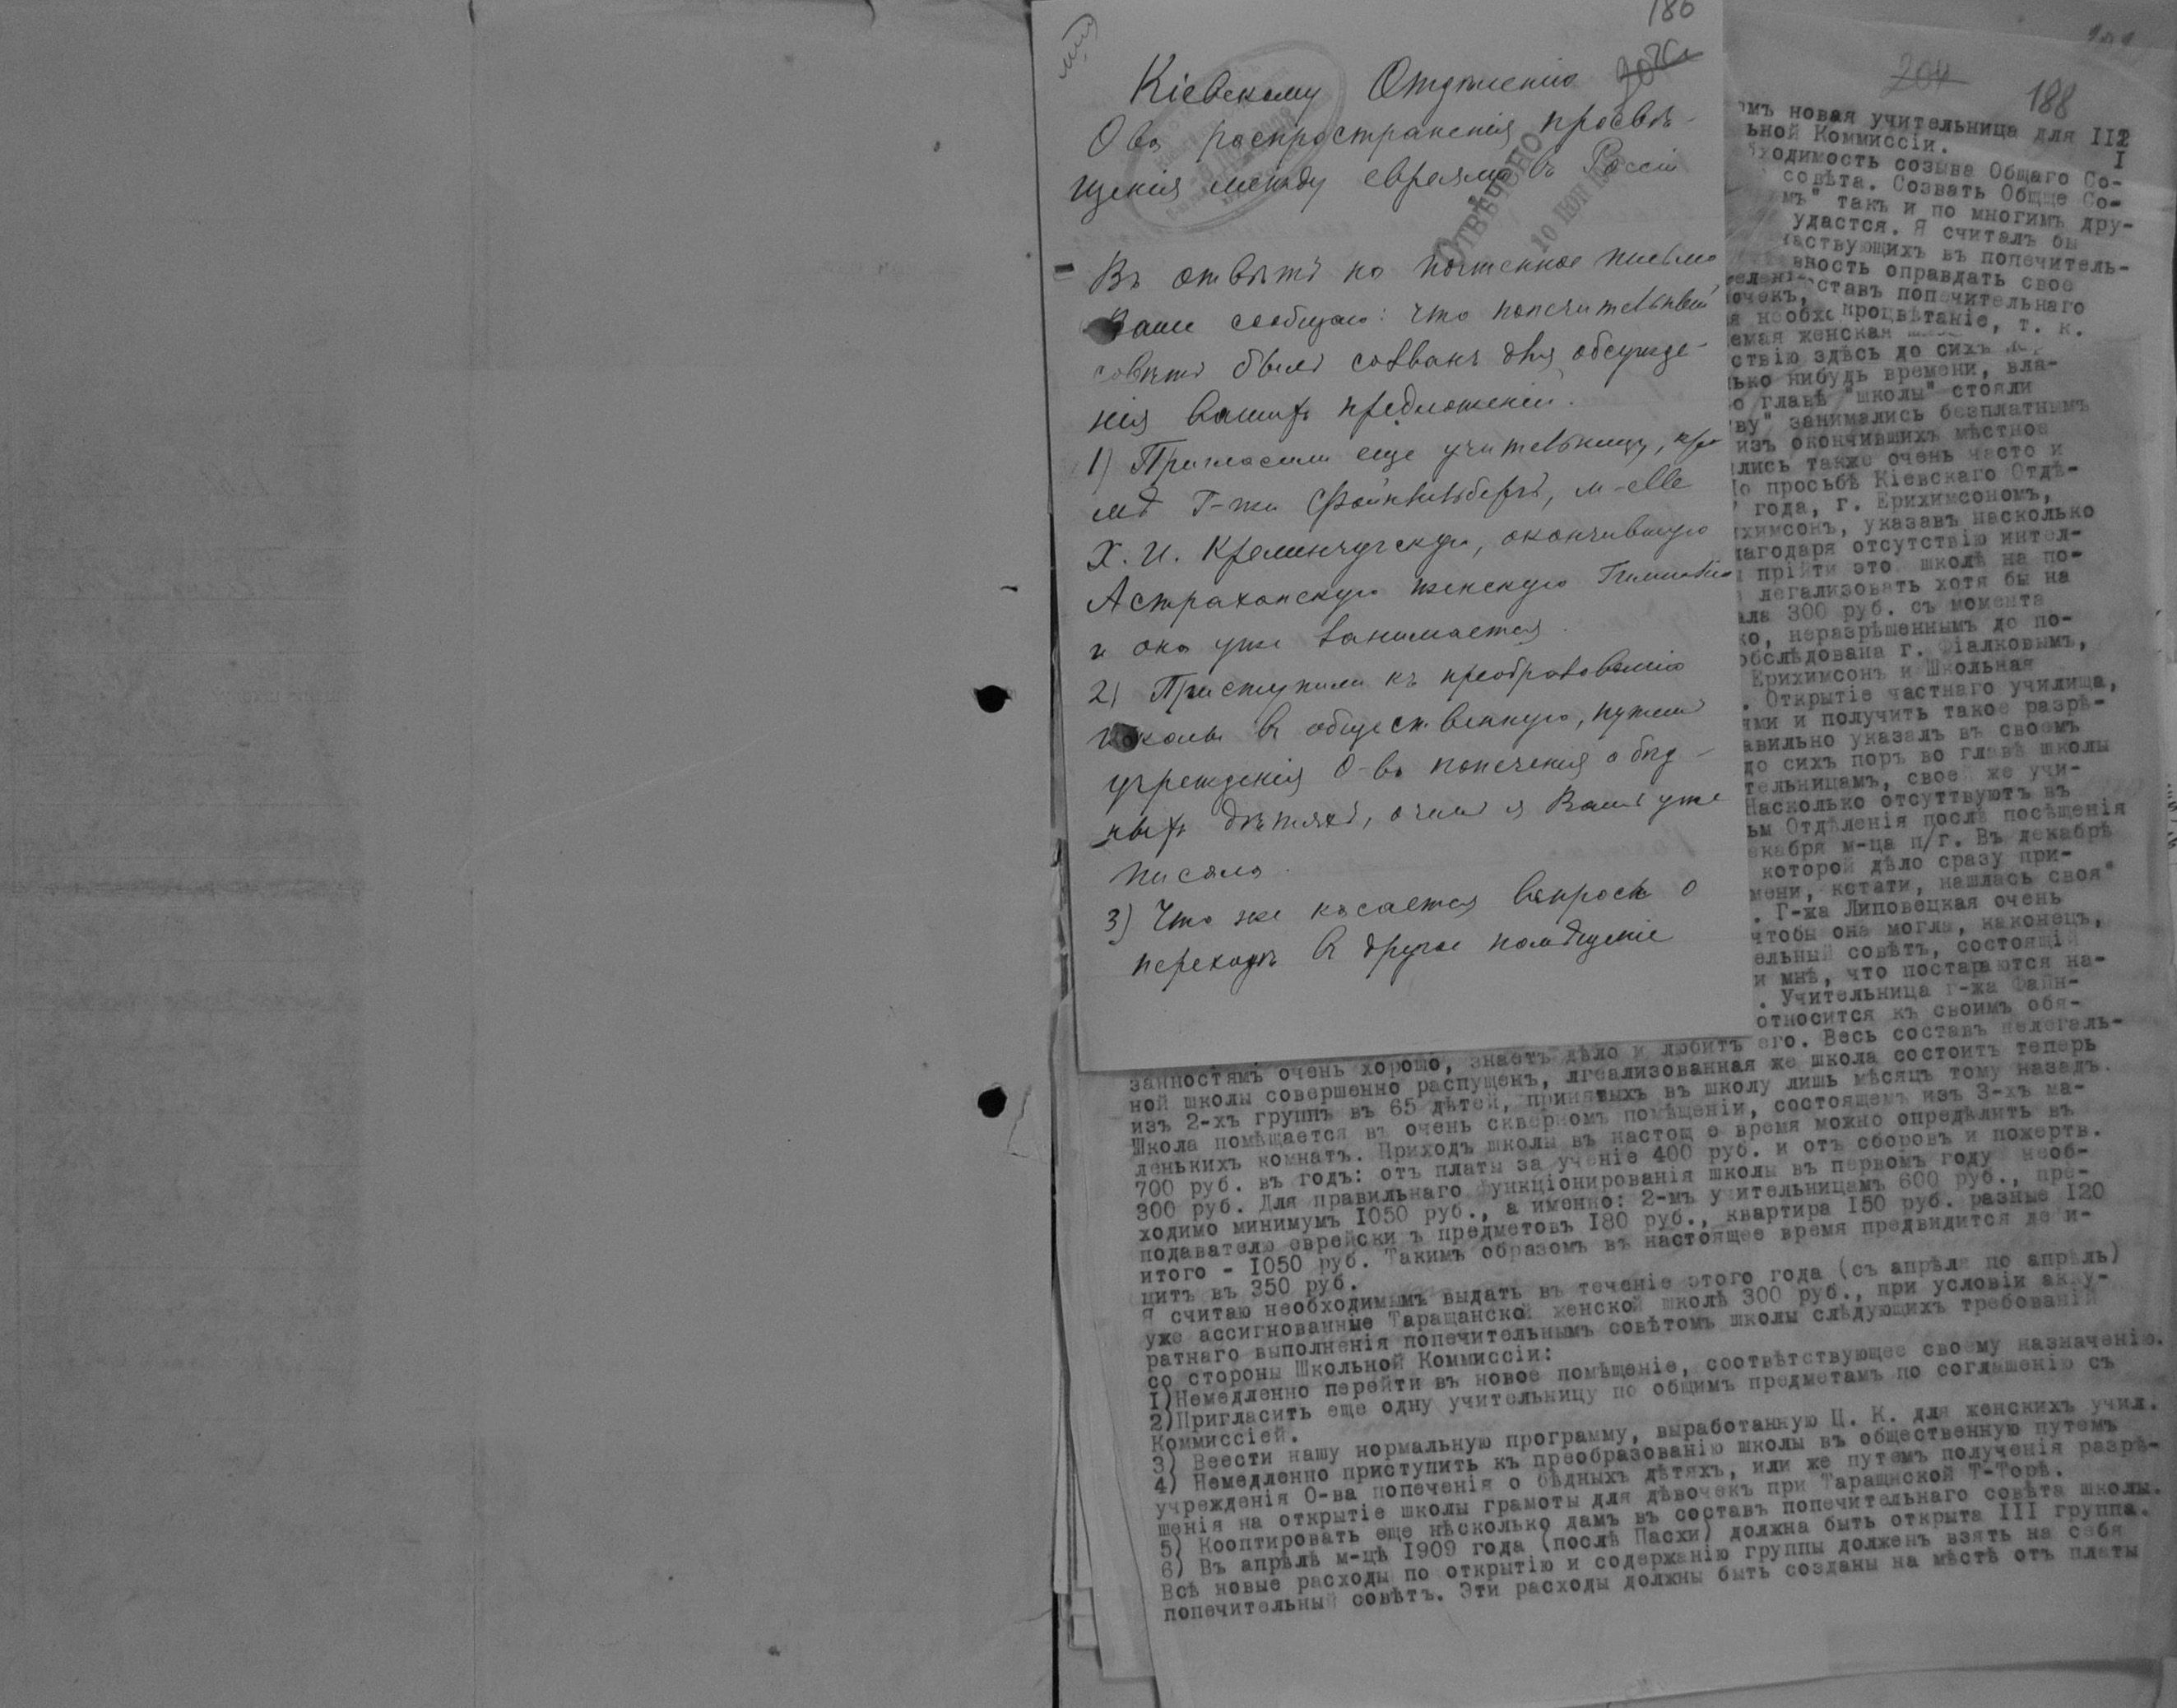 186
Кіевскому Отдѣленію
О-ва распространенія просвѣ-
щенія между евреями въ Россіи
ОТВѢЧЕНО
10 ІЮН
Въ отвѣтъ на почтенное письмо
Ваше сообщаю: что попечительный
совѣтъ былъ созванъ для обсужде-
нія вашихъ предложеній.
1) Пригласили еще учительницу, кро
мѣ Г-жи Файнзильбергъ, м-elle
Х. И. Кременчугскую, окончившую
Астраханскую женскую Гимназію
и она уже занимается.
2) Приступили къ преобразованію
школы въ общественную, путемъ
учрежденія О-ва попеченія о бѣд-
ныхъ дѣтяхъ, о чемъ я Вамъ уже
писала.
3) Что же касается вопроса о
переходѣ въ другое помѣщеніе
204
188
омъ новая учительница для III
I
ьной Коммиссіи.
ходимость созыва Общаго Со-
совѣта. Созвать Общще Со-
мъ" такъ и по многимъ дру-
удастся. Я считалъ бы
частвующихъ въ попечитель-
вность оправдать свое
ставъ попечительнаго
очекъ,
я необхо процвѣтаніе, т. к.
емая женская
ствію здѣсь до сихъ
ько нибудь времени, вла-
о главѣ "школы" стояли
ву" занимались безплатнымъ
изъ окончившихъ мѣстное
лись также очень часто и
о просьбѣ Кіевскаго Отдѣ-
года, г. Ерихимсономъ,
ихимсонъ, указавъ насколько
лагодаря отсутствію интел-
прійти это школѣ на по-
легализовать хотя бы на
ала 300 руб. съ момента
ко, неразрѣшеннымъ до по-
обслѣдована г. Фіалковымъ,
Ерихимсонъ и Школьная
. Открытіе частнаго училища,
ями и получить такое разрѣ-
авильно указалъ въ своемъ
до сихъ поръ во главѣ школы
тельницамъ, своей же учи-
Насколько отсуттвуютъ въ
ьм Отдѣленія послѣ посѣщенія
екабря м-ца п/г. Въ декабрѣ
которой дѣло сразу при-
мени, кстати, нашлась своя"
. Г-жа Липовецкая очень
чтобы она могла, наконецъ,
ельный совѣтъ, состоящій
и мнѣ, что постараются на-
. Учительница г-жа Файн-
относится къ своимъ обя-
занностямъ очень хорошо, знаетъ дѣло и любитъ его. Весь составъ нелегаль-
ной школы совершенно распущенъ, лгеализованная же школа состоитъ теперь
изъ 2-хъ группъ въ 65 дѣтей, принятыхъ въ школу лишь мѣсяцъ тому назадъ.
Школа помѣщается въ очень скверномъ помѣщеніи, состоящемъ изъ 3-хъ ма-
ленькихъ комнатъ. Приходъ школы въ настоящ е время можно опредѣлить въ
700 руб. въ годъ: отъ платы за ученіе 400 руб. и отъ сборовъ и пожертв.
300 руб. Для правильнаго функціонированія школы въ первомъ году необ-
ходимо минимумъ 1050 руб., а именно: 2-мъ учительницамъ 600 руб., пре-
подавателю еврейски ъ предметовъ 180 руб., квартира 150 руб. разные 120
итого - 1050 руб. Такимъ образомъ въ настоящее время предвидится де и-
цитъ въ 350 руб.
Я считаю необходимымъ выдать въ теченіе этого года (съ апрѣля по апрѣль)
уже ассигнованные Таращанской женской школѣ 300 руб., при условіи акку-
ратнаго выполненія попечительнымъ совѣтомъ школы слѣдующихъ требованій
со стороны Школьной Коммиссіи:
I)Немедленно перейти въ новое помѣщеніе, соотвѣтствующее своему назначенію.
2)Пригласить еще одну учительницу по общимъ предметамъ по соглашенію съ
Коммиссіей.
3) Ввести нашу нормальную программу, выработанную Ц. К. для женскихъ учил.
4) Немедленно приступить къ преобразованію школы въ общественную путемъ
учрежденія О-ва попеченія о бѣдныхъ дѣтяхъ, или же путемъ полученія разрѣ-
шенія на открытіе школы грамоты для дѣвочекъ при Таращнской Т-Торѣ.
5) Кооптировать еще нѣсколько дамъ въ составъ попечительнаго совѣта школы.
6) Въ апрѣлѣ м-цѣ 1909 года (послѣ Пасхи) должна быть открыта III группа.
Всѣ новые расходы по открытію и содержанію группы долженъ взять на себя
попечительный совѣтъ. Эти расходы должны быть созданы на мѣстѣ отъ платы